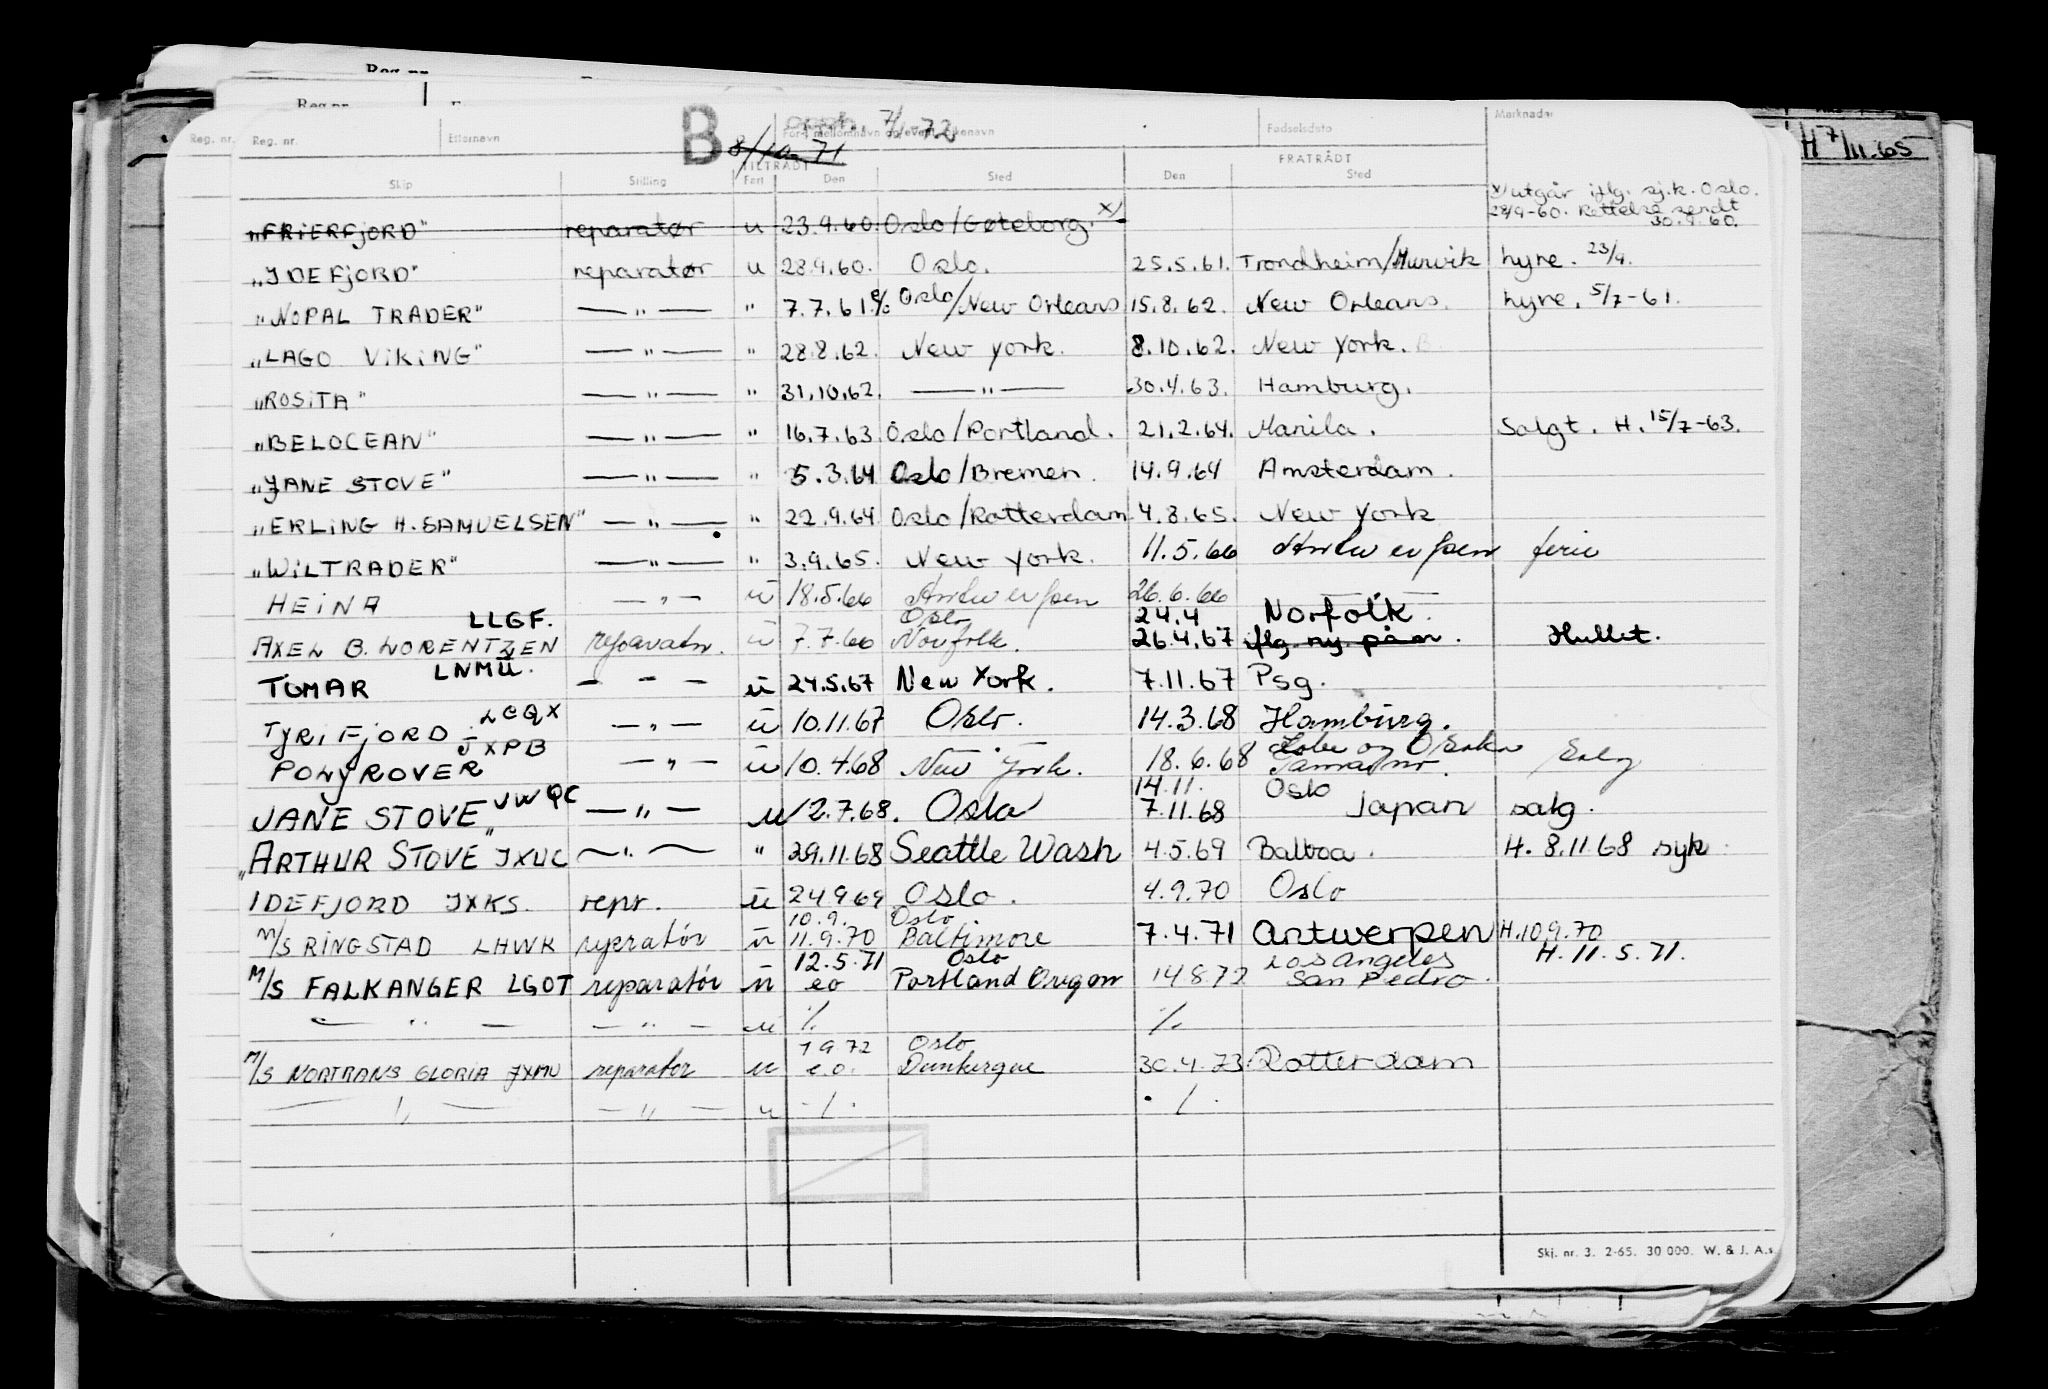 Reg. nr.
Reg. nr.
Reg. nr. Reg. nr. Etternavn B opph. 7/1-72 For-, mellomnavn og event. pikenavn Fødselsdato Merknader
8/10-71 H 7/11.65
TILTRÅDT FRATRÅDT
Skip Stilling Fart Den Sted Den Sted
x) utgår iflg. sj.k. Oslo.
28/9-60. Rettelse sendt
30.9.60.
"FRIERFJORD" reparatør u 23.9.60. Oslo/Gøteborg. x)
"IDEFJORD" reparatør u 28.9.60. Oslo. 25.5.61. Trondheim/Murvik hyre. 23/9.
"NOPAL TRADER" —"— " 7.7.61. % Oslo/New Orleans 15.8.62. New Orleans. hyre. 5/7-61.
"LAGO VIKING" —"— " 28.8.62. New York. 8.10.62. New York.
"ROSITA" —"— " 31.10.62. —"— 30.4.63. Hamburg.
"BELOCEAN" —"— " 16.7.63 Oslo/Portland. 21.2.64. Manila. Solgt. H. 15/7-63.
"JANE STOVE" —"— " 5.3.64 Oslo/Bremen. 14.9.64 Amsterdam.
"ERLING H. SAMUELSEN" —"— " 22.9.64 Oslo/Rotterdam 4.8.65. New York
"WILTRADER" —"— " 3.9.65. New York. 11.5.66 Antwerpen ferie
HEINA —"— u 18.5.66 Antwerpen 26.6.66 —
LLGF. Oslo 24.4 Norfolk.
AXEL B. LORENTZEN reparatør. u 7.7.66 Norfolk. 26.4.67 iflg. ny. påm. Hullet.
LNMU.
TOMAR — " — u 24.5.67 New York. 7.11.67 Psg.
LCQX
TYRIFJORD —"— u 10.11.67 Oslo. 14.3.68 Hamburg.
JXPB Kobe og Osaka
POLYROVER —"— u 10.4.68 New York. 18.6.68 Salg
14.11. Oslo
JANE STOVE" JWQC —"— u 12.7.68. Oslo 7.11.68 Japan salg.
"ARTHUR STOVE JXUC —"— " 29.11.68 Seattle Wash 4.5.69 Balboa. H. 8.11.68 syk.
IDEFJORD JXKS. repr. u 24969 Oslo. 4.9.70 Oslo
10.9. Oslo
M/S RINGSTAD LHWK reperatør u 11.9.70 Baltimore 7.4.71 Antwerpen H.10.9.70
12.5.71 Oslo Los Angeles H. 11.5.71.
M/S FALKANGER LGOT reparatør u eo Portland Oregon 14.8.72 San Pedro.
— " — — " — u %. %.
1972 Oslo
M/S NORTRANS GLORIA JXMU reparatør u e.o. Dunkerque 30.4.73 Rotterdam
— " — — " — u -/. ./.
Skj. nr. 3. 2-65. 30 000. W. & J. A.s